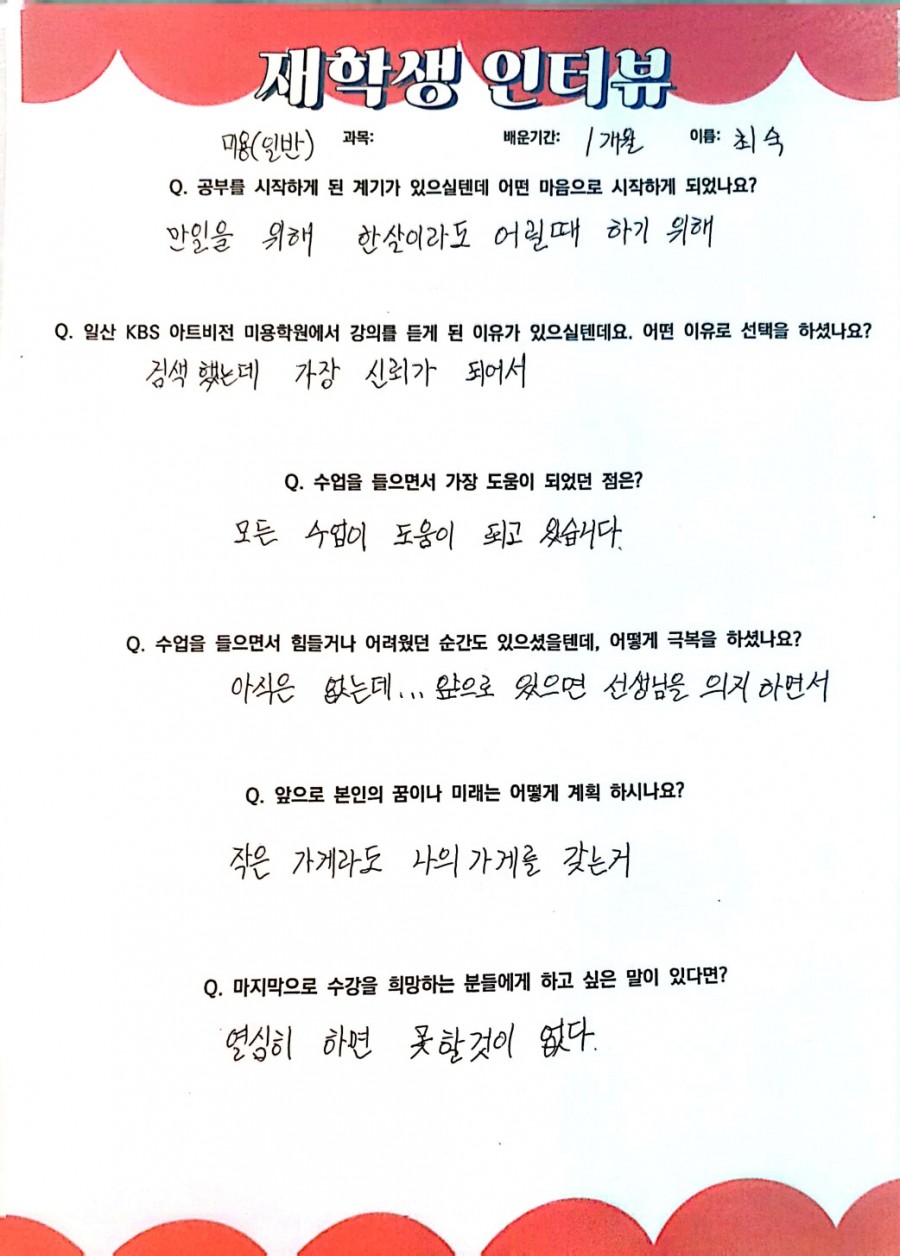 재학생 인터뷰
미용(일반) 과목: 배운기간: 1개월 이름: 최숙
Q. 공부를 시작하게 된 계기가 있으실텐데 어떤 마음으로 시작하게 되었나요?
만일을 위해 한살이라도 어릴때 하기 위해
Q. 일산 KBS 아트비전 미용학원에서 강의를 듣게 된 이유가 있으실텐데요. 어떤 이유로 선택을 하셨나요?
검색했는데 가장 신뢰가 되어서
Q. 수업을 들으면서 가장 도움이 되었던 점은?
모든 수업이 도움이 되고 있습니다.
Q. 수업을 들으면서 힘들거나 어려웠던 순간도 있으셨을텐데, 어떻게 극복을 하셨나요?
아직은 없는데... 앞으로 있으면 선생님을 의지하면서
Q. 앞으로 본인의 꿈이나 미래는 어떻게 계획 하시나요?
작은 가게라도 나의 가게를 갖는거
Q. 마지막으로 수강을 희망하는 분들에게 하고 싶은 말이 있다면?
열심히 하면 못할것이 없다.